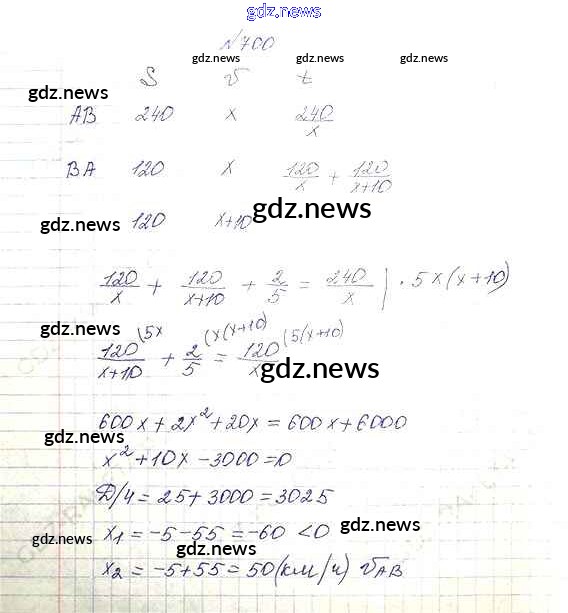 gdz.news
№700
gdz.news gdz.news gdz.news
S v t
gdz.news
AB 240 x 240/x
BA 120 x 120/x + 120/(x+10)
gdz.news 120 x+10 gdz.news
120/x + 120/(x+10) + 2/5 = 240/x | · 5x(x+10)
gdz.news
120/(x+10) (5x + 2/5 (x(x+10) = 120/x (5(x+10)
gdz.news
600x + 2x² + 20x = 600x + 6000
gdz.news
x² + 10x - 3000 = 0
D/4 = 25 + 3000 = 3025
x₁ = -5 - 55 = -60 < 0 gdz.news
gdz.news gdz.news
x₂ = -5 + 55 = 50 (км/ч) v AB